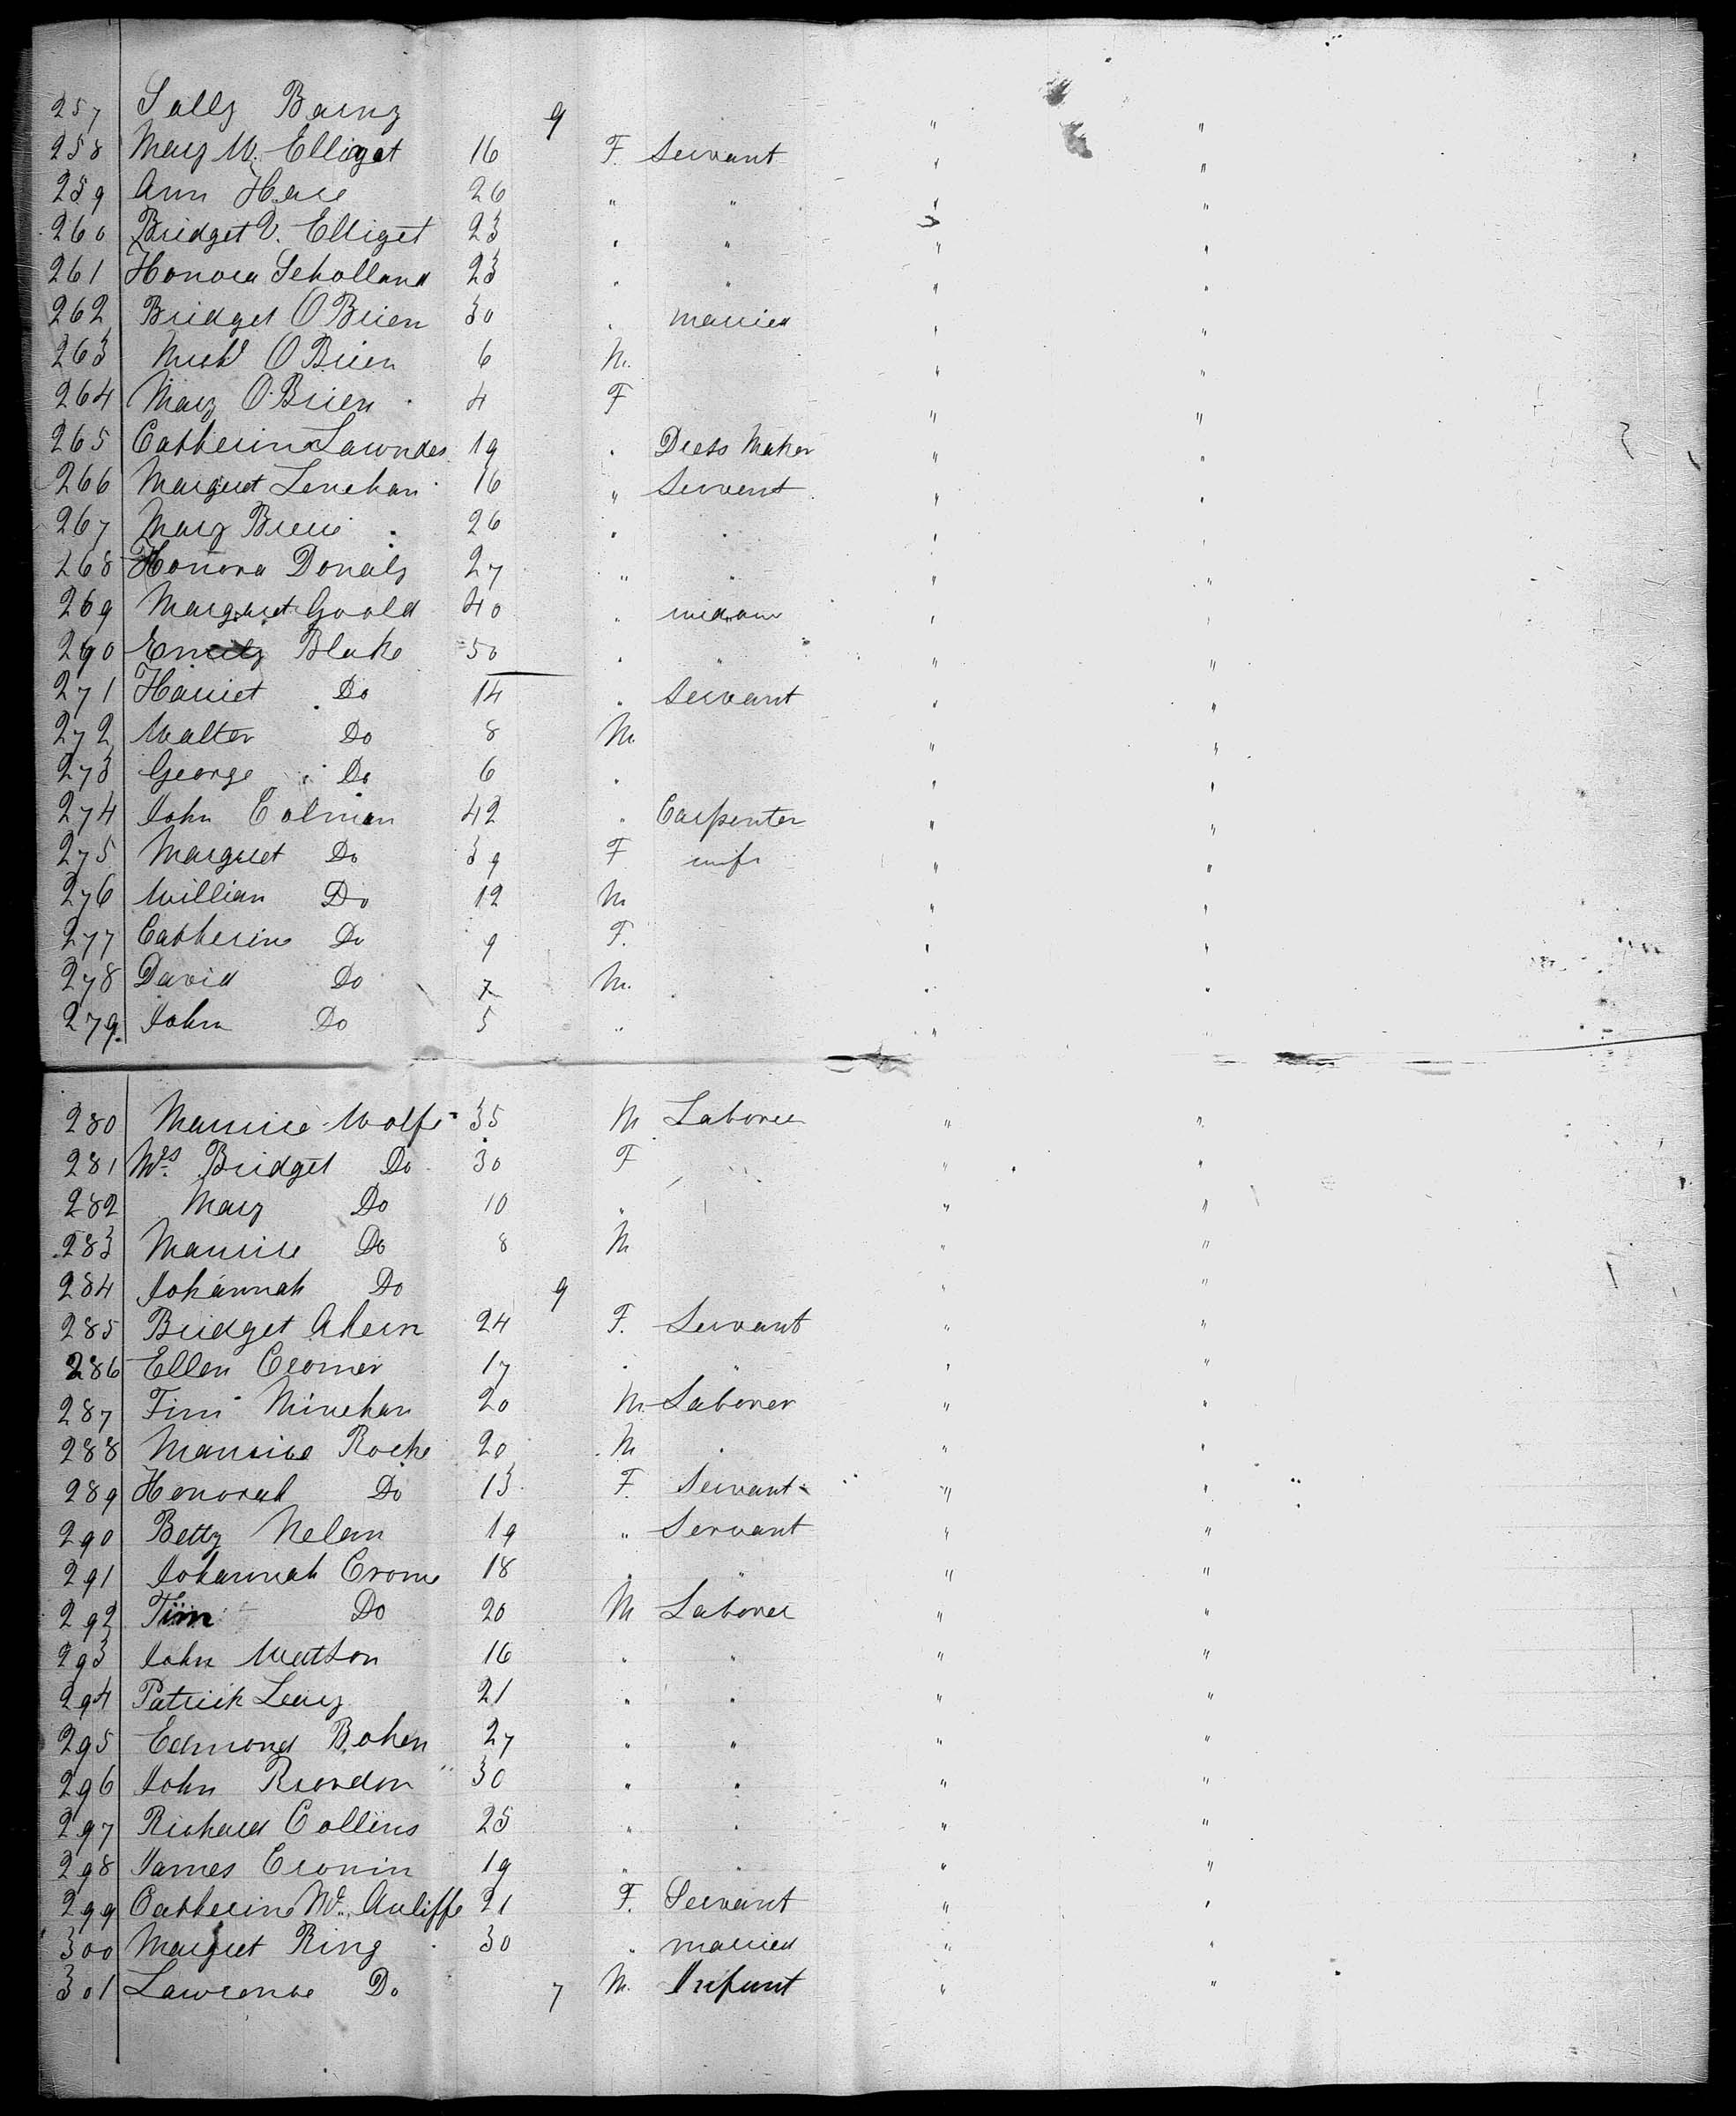 257 Sally Barny 9 " "
258 Mary M. Elligat 16 F. Servant " "
259 Ann Hare 26 " " " "
260 Bridget V. Elliget 23 " " " "
261 Honora Scholland 23 " " " "
262 Bridget O'Brien 30 " married " "
263 Michl O Brien 6 M. " "
264 Mary O'Brien 4 F " "
265 Catherine Lawndes 19 " Dress Maker " "
266 Margret Lenehan 16 " Servent " "
267 Mary 26 " " " "
268 Honora Donaly 27 " " " "
269 Margaret Goold 40 " widow " "
290 Emily Blake 50 " " " "
271 Harriet Do 14 " Servant " "
272 Walter Do 8 M. " "
273 George Do 6 " " "
274 John Colman 42 " Carpenter " "
275 Margret Do 39 F wife " "
276 William Do 12 M " "
277 Catherine Do 9 F. " "
278 David Do 7 M. " "
279. John Do 5 " " "
280 Maurice Wolfe 35 M Laborer " "
281 Mrs. Bridget Do 30 F " "
282 Mary Do 10 " " "
283 Maurice Do 8 M " "
284 Johannah Do 9 " "
285 Bridget Ahern 24 F. Servant " "
286 Ellen Cromer 17 " " " "
287 Tim Minehan 20 M Laborer " "
288 Maurice Roche 20 M " " "
289 Honorah Do 13 F. Servant " "
290 Betty Nelan 19 " Servant " "
291 Johannah Crome 18 " " " "
292 Tim Do 20 M Laborer " "
293 John Wattson 16 " " " "
294 Patrick Leary 21 " " " "
295 Edmond Bohen 27 " " " "
296 John Riordon 30 " " " "
297 Richard Collins 25 " " " "
298 James Cronin 19 " " " "
299 Catherine Mc. Auliffe 21 F. Servant " "
300 Margret Ring 30 " married " "
301 Lawrence Do 7 M. Infant " "